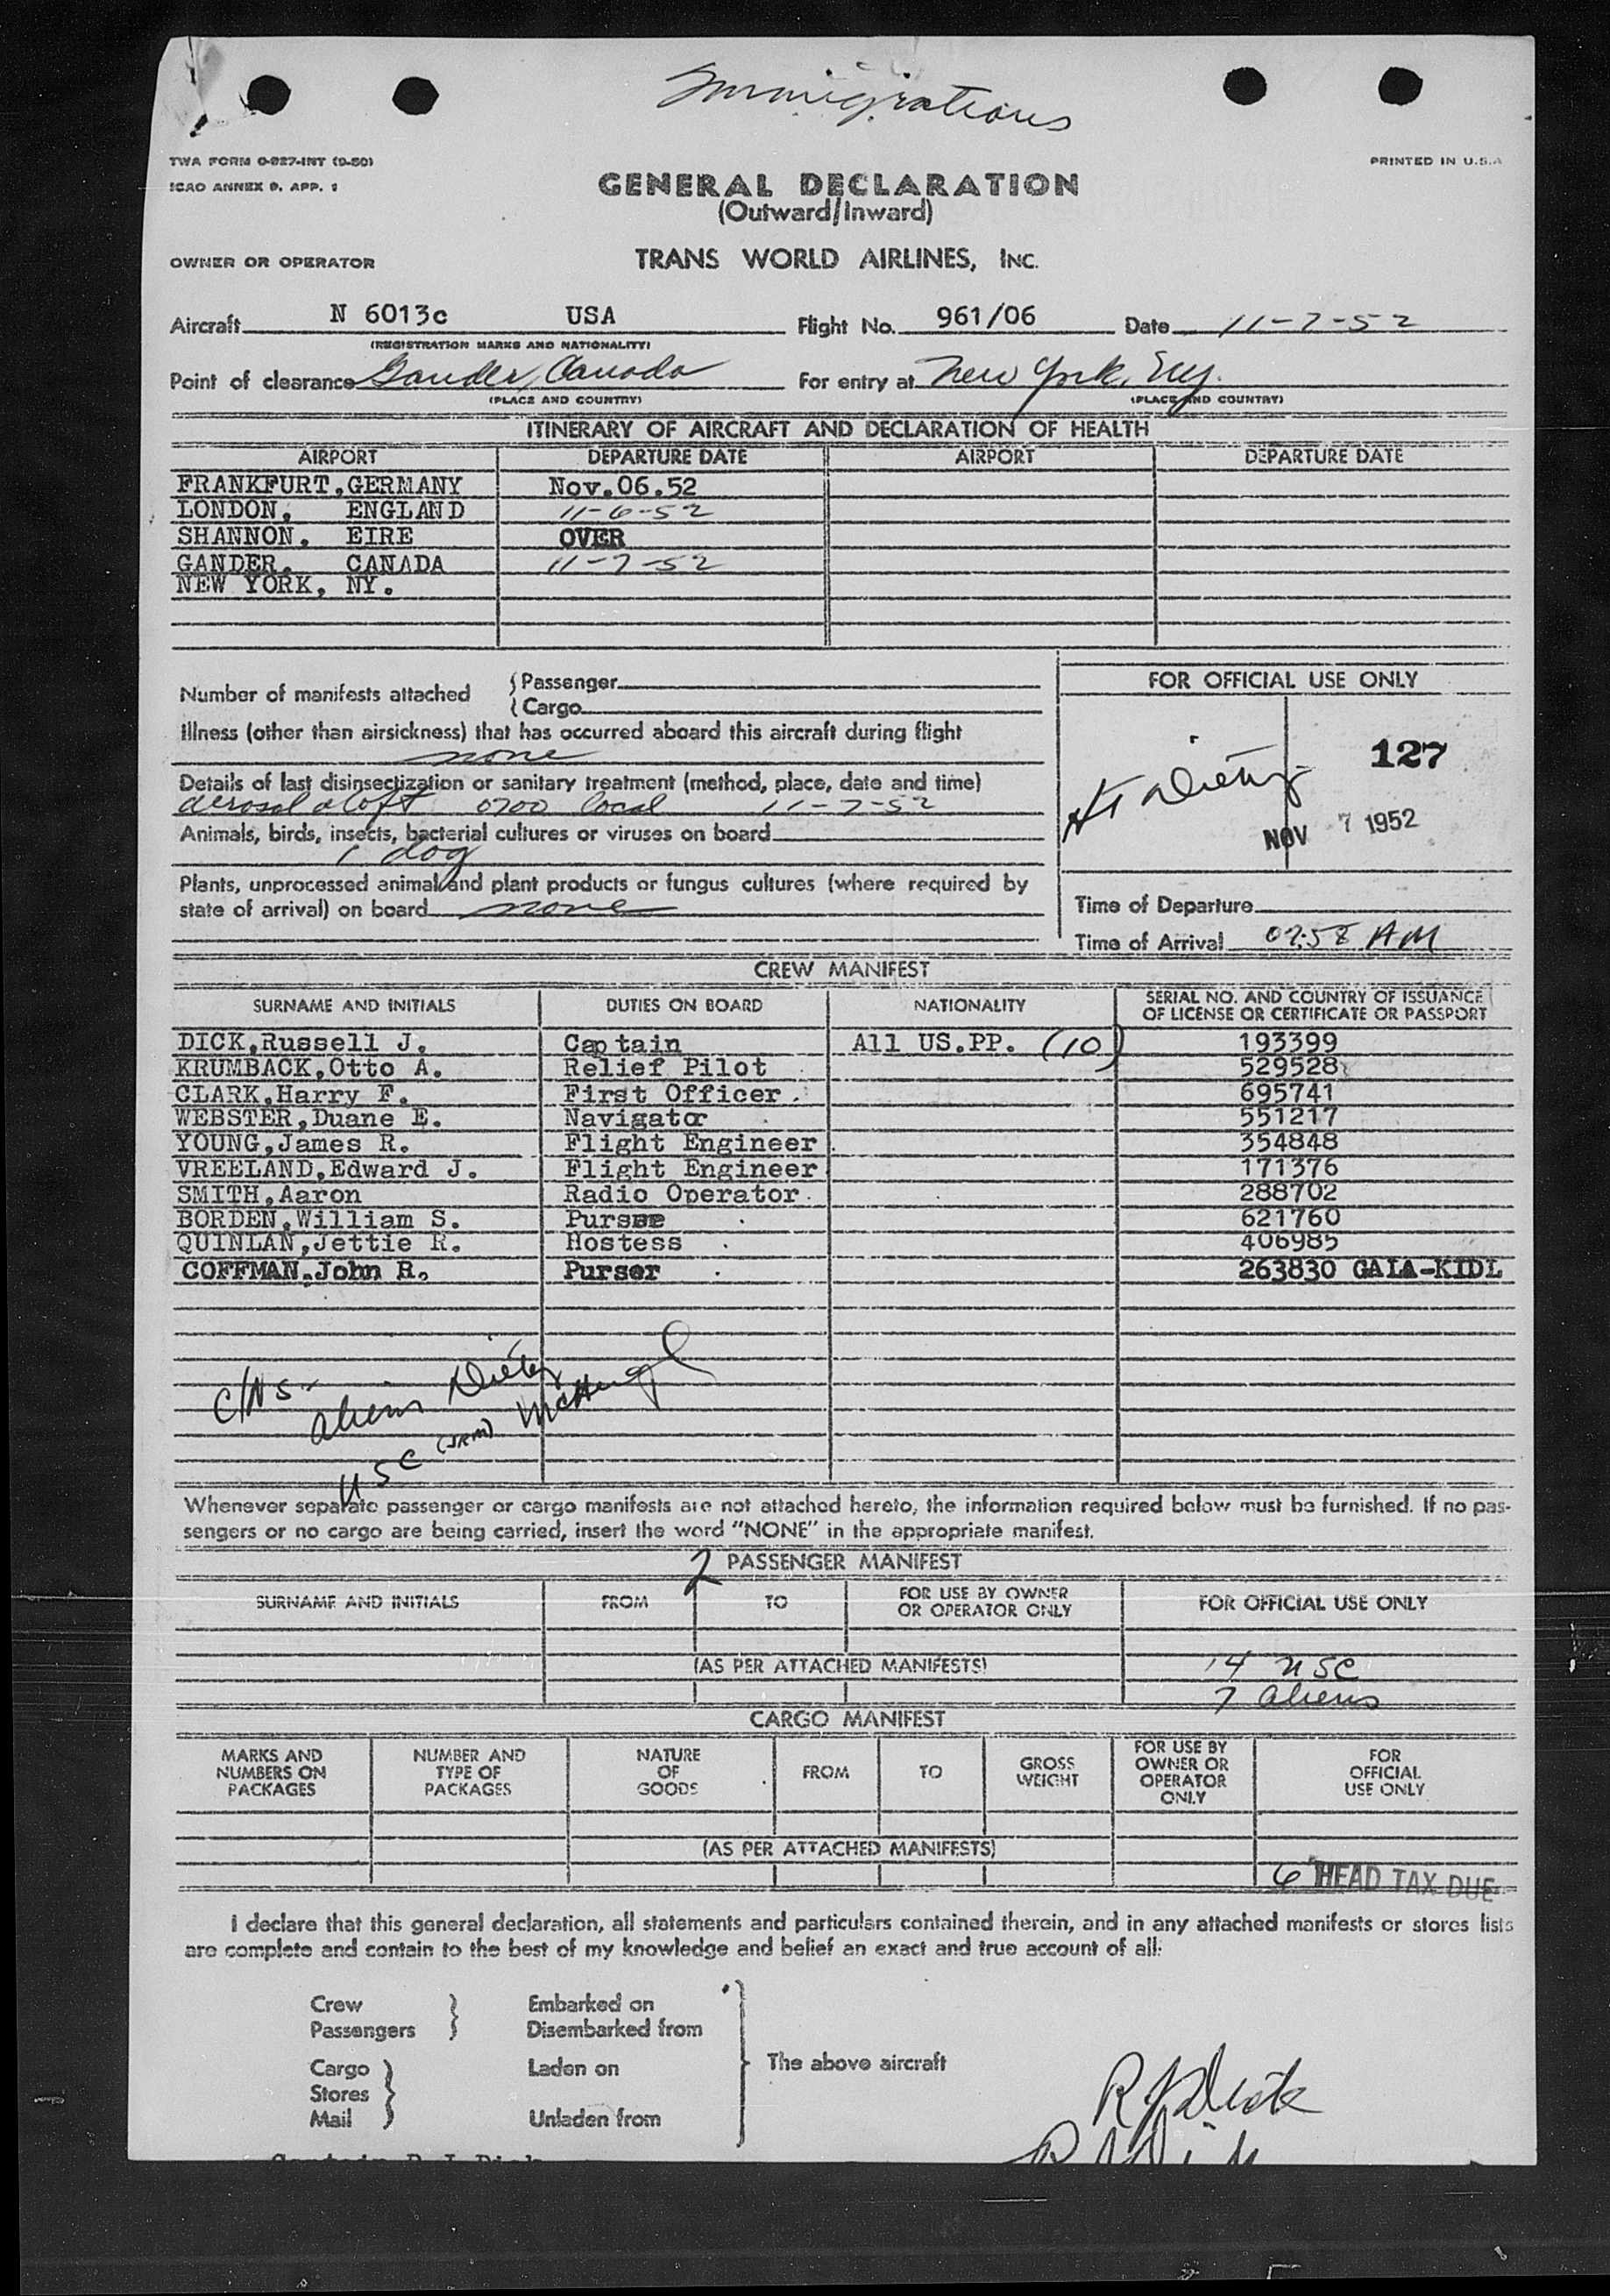 Immigrations
TWA FORM 0-927-INT (9-50)
PRINTED IN U.S.A
ICAO ANNEX 9, APP. 1
GENERAL DECLARATION
(Outward/Inward)
OWNER OR OPERATOR
TRANS WORLD AIRLINES, INC.
Aircraft N 6013c USA Flight No. 961/06 Date 11-7-52
(REGISTRATION MARKS AND NATIONALITY)
Point of clearance Gander, Canada For entry at New York, NY.
(PLACE AND COUNTRY) (PLACE AND COUNTRY)
ITINERARY OF AIRCRAFT AND DECLARATION OF HEALTH
AIRPORT DEPARTURE DATE AIRPORT DEPARTURE DATE
FRANKFURT,GERMANY Nov.06.52
LONDON, ENGLAND 11-6-52
SHANNON, EIRE OVER
GANDER, CANADA 11-7-52
NEW YORK, NY.
Number of manifests attached {Passenger
{Cargo
FOR OFFICIAL USE ONLY
Illness (other than airsickness) that has occurred aboard this aircraft during flight
none
127
Details of last disinsectization or sanitary treatment (method, place, date and time)
aerosol aloft 0700 local 11-7-52
NOV 7 1952
Animals, birds, insects, bacterial cultures or viruses on board
1 dog
Plants, unprocessed animal and plant products or fungus cultures (where required by
state of arrival) on board none
Time of Departure
Time of Arrival 07:58 AM
CREW MANIFEST
SURNAME AND INITIALS DUTIES ON BOARD NATIONALITY SERIAL NO. AND COUNTRY OF ISSUANCE
OF LICENSE OR CERTIFICATE OR PASSPORT
DICK,Russell J. Captain All US.PP. (10) 193399
KRUMBACK,Otto A. Relief Pilot 529528
CLARK,Harry F. First Officer 695741
WEBSTER,Duane E. Navigator 551217
YOUNG,James R. Flight Engineer 354848
VREELAND,Edward J. Flight Engineer 171376
SMITH,Aaron Radio Operator 288702
BORDEN,William S. Purser 621760
QUINLAN,Jettie R. Hostess 406985
COFFMAN,John R. Purser 263830 GALA-KIDL
C/NS-
aliens Dietz
USC (JRM) McHugh
Whenever separate passenger or cargo manifests are not attached hereto, the information required below must be furnished. If no pas-
sengers or no cargo are being carried, insert the word "NONE" in the appropriate manifest.
2 PASSENGER MANIFEST
SURNAME AND INITIALS FROM TO FOR USE BY OWNER
OR OPERATOR ONLY FOR OFFICIAL USE ONLY
(AS PER ATTACHED MANIFESTS) 14 USC
7 aliens
CARGO MANIFEST
MARKS AND
NUMBERS ON
PACKAGES
NUMBER AND
TYPE OF
PACKAGES
NATURE
OF
GOODS
FROM
TO
GROSS
WEIGHT
FOR USE BY
OWNER OR
OPERATOR
ONLY
FOR
OFFICIAL
USE ONLY
(AS PER ATTACHED MANIFESTS)
6 HEAD TAX DUE
I declare that this general declaration, all statements and particulars contained therein, and in any attached manifests or stores lists
are complete and contain to the best of my knowledge and belief an exact and true account of all:
Crew Embarked on
Passengers Disembarked from
Cargo Laden on The above aircraft
Stores
Mail Unladen from
R J Dick
Captain R J Dick